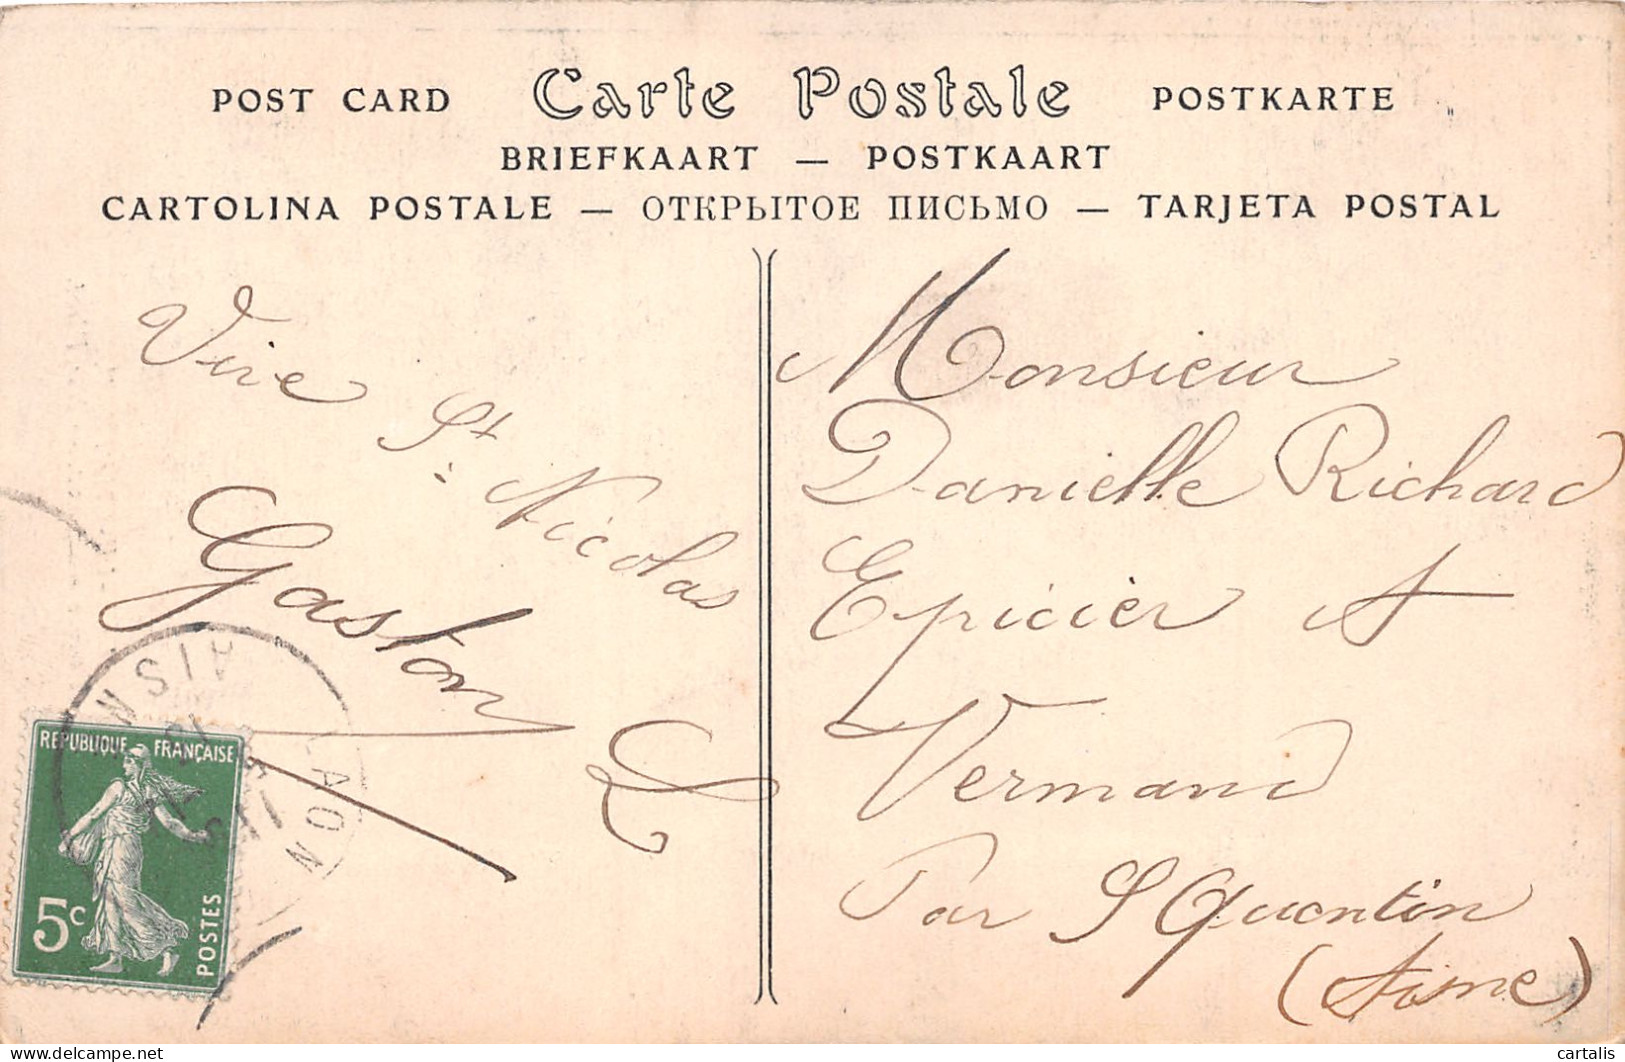 POST CARD Carte Postale POSTKARTE
BRIEFKAART — POSTKAART
CARTOLINA POSTALE — ОТКРЫТОЕ ПИСЬМО — TARJETA POSTAL
Vive St. Nicolas
Gaston
Monsieur
Danielle Richard
Epicier A
Vermand
Par St Quentin
(Aisne)
REPUBLIQUE FRANÇAISE
5c
POSTES
LAON
cartalis